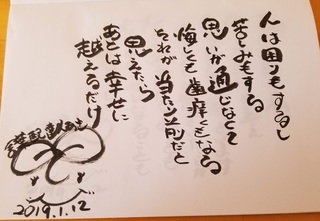 人は困りもするし
苦しみもする
思いが通じなくて
悔しくも歯痒くもなる
それが当たり前だと
思えたら
あとは幸せに
越えるだけ
言葉配達人
2019.1.12